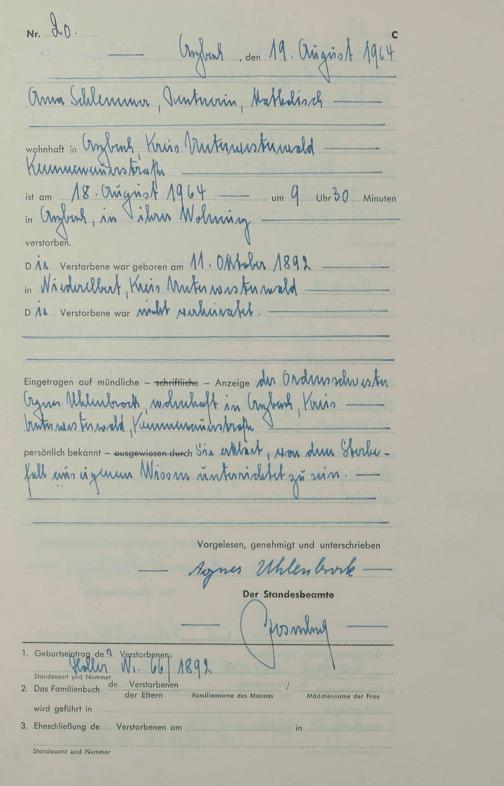 Nr. 20. C
Arzbach, den 19. August 1964
Anna Schlemmer, Rentnerin, Katholisch
wohnhaft in Arzbach, Kreis Unterwesterwald
ist am 18. August 1964 um 9 Uhr 30 Minuten
in Arzbach, in ihrer Wohnung
verstorben.
Die Verstorbene war geboren am 11. Oktober 1892
in Niederelbert, Kreis Unterwesterwald
Die Verstorbene war nicht verheiratet.
Eingetragen auf mündliche – schriftliche – Anzeige der Ordensschwester
Agnes Uhlenbrock, wohnhaft in Arzbach, Kreis
Unterwesterwald,
persönlich bekannt – ausgewiesen durch Sie erklärt, von dem Sterbe-
fall aus eigenem Wissen unterrichtet zu sein.
Vorgelesen, genehmigt und unterschrieben
Agnes Uhlenbrock
Der Standesbeamte
1. Geburtseintrag der Verstorbenen:
Nr. 66/1892
Standesamt und Nummer
2. Das Familienbuch de Verstorbenen /
der Eltern Familienname des Mannes Mädchenname der Frau
wird geführt in
3. Eheschließung de Verstorbenen am in
Standesamt und Nummer